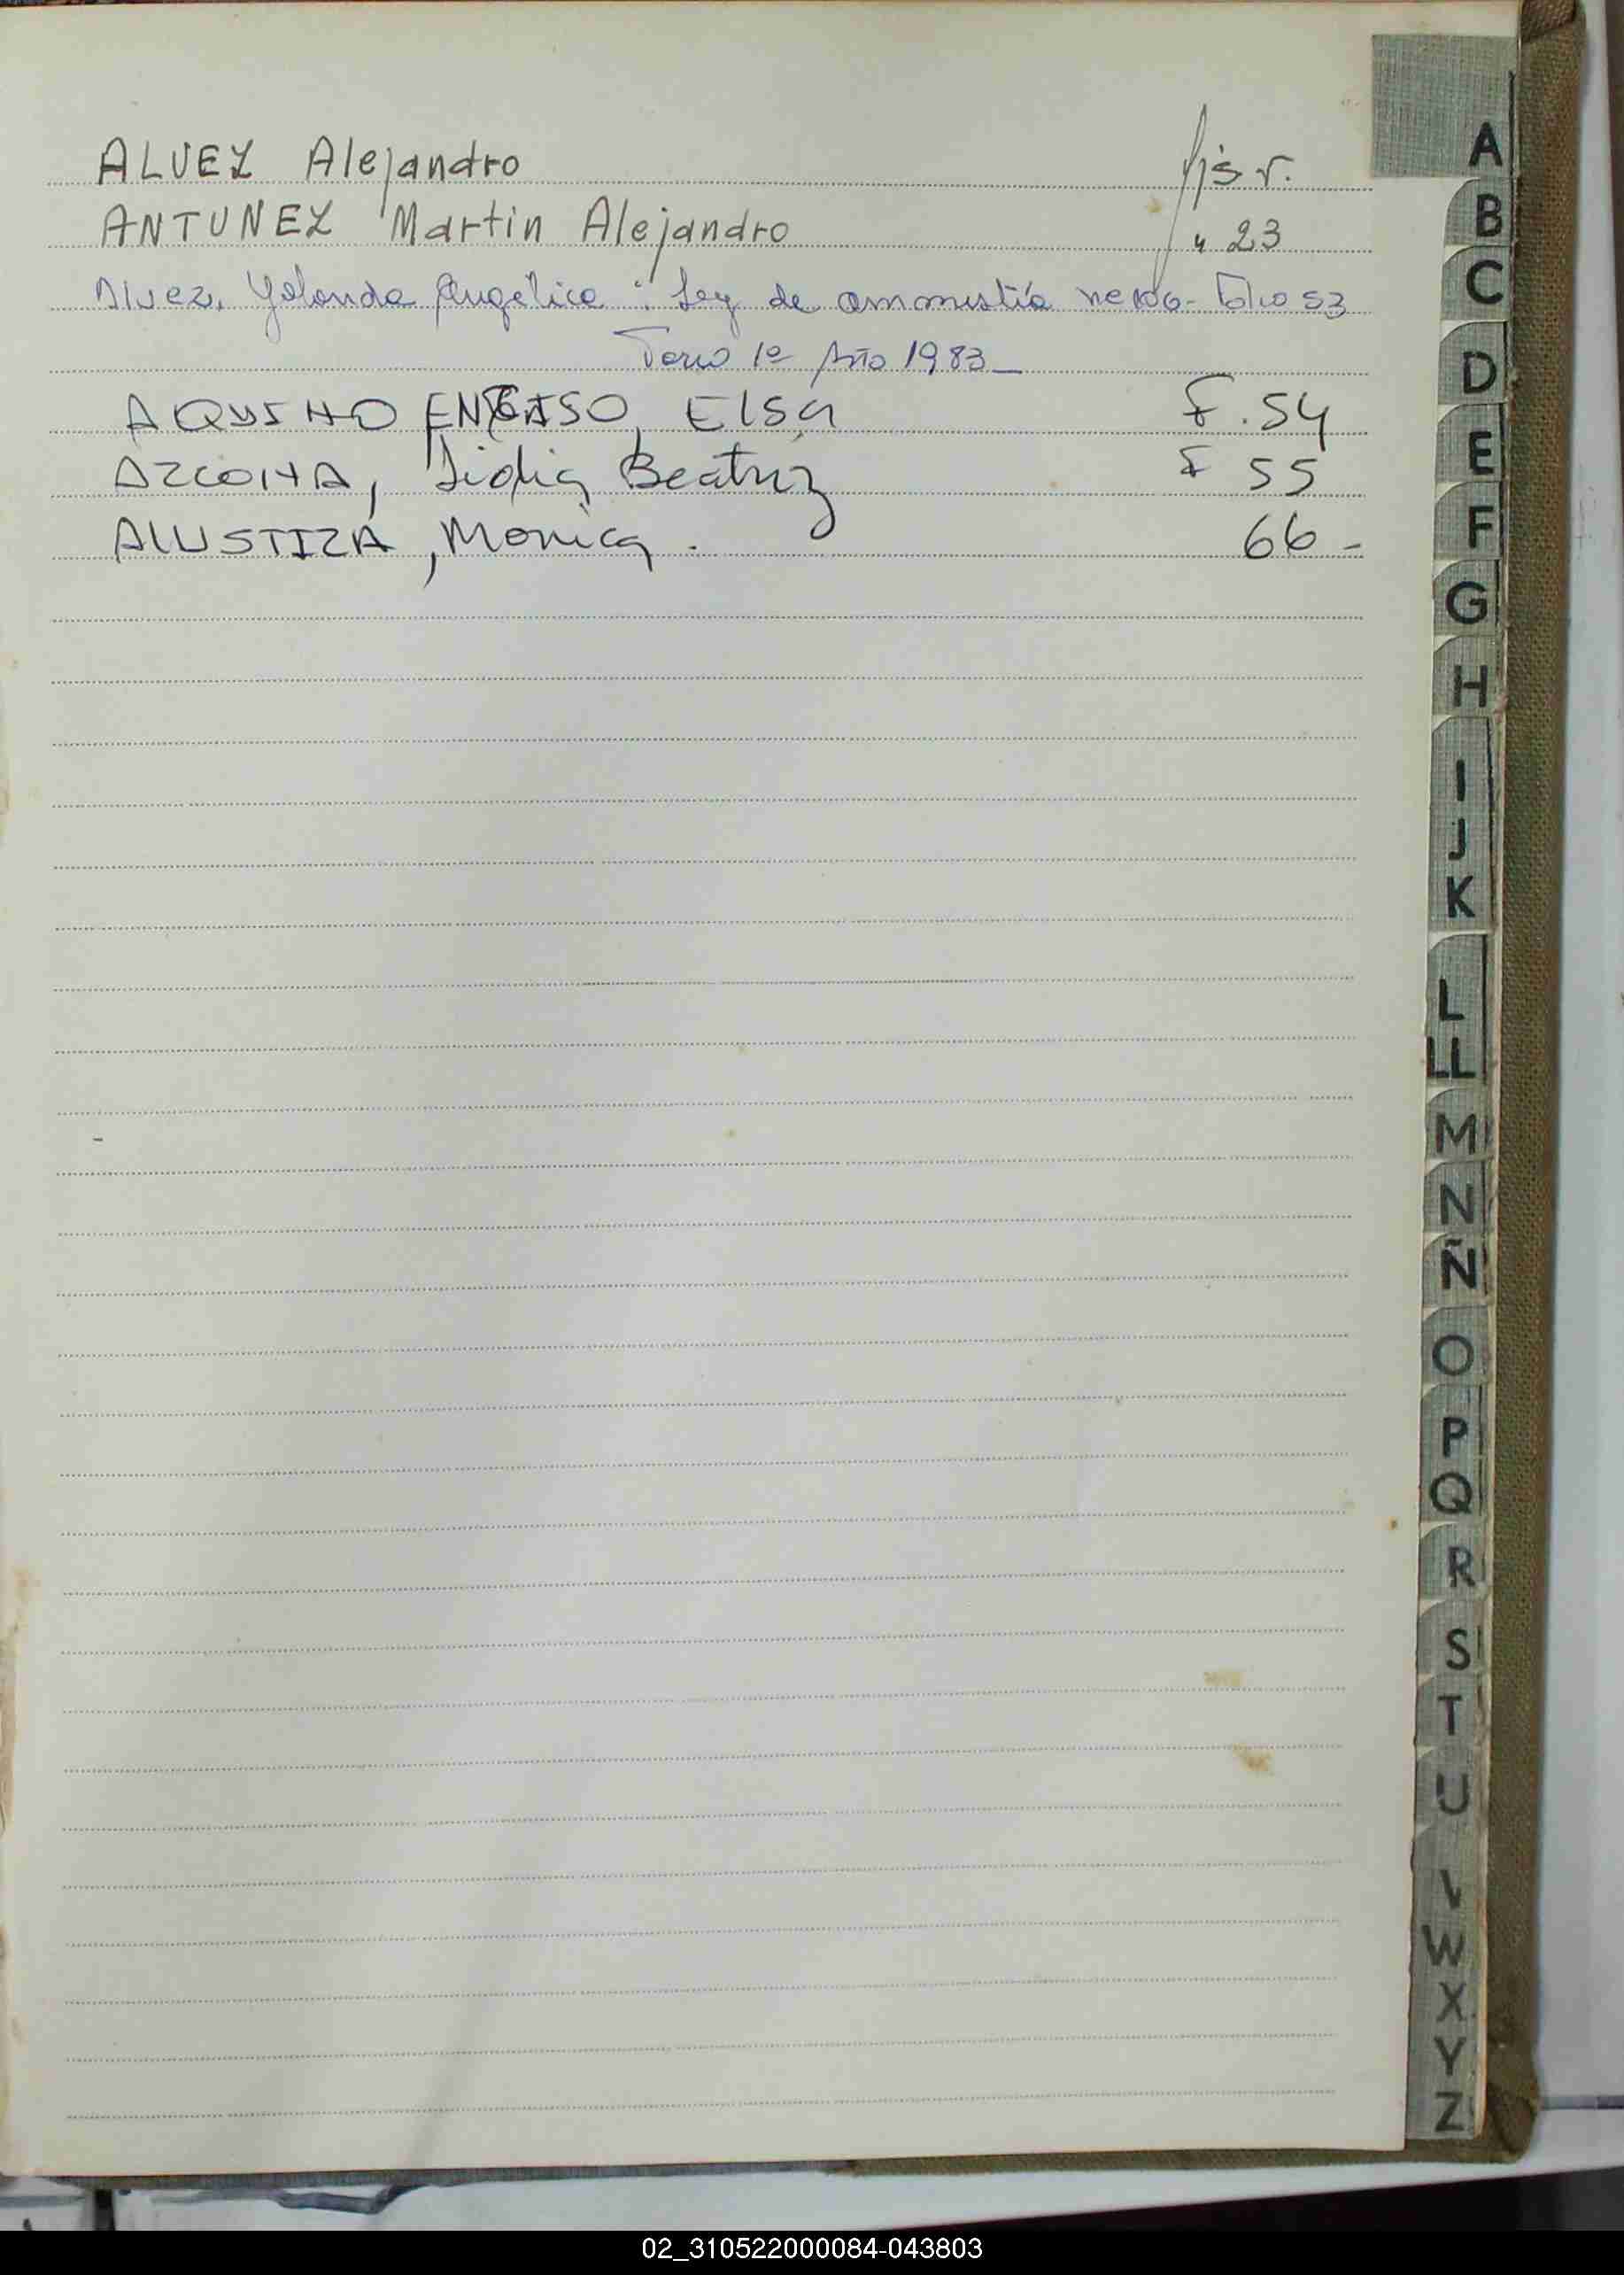 ALVEZ Alejandro fjs r.
ANTUNEZ Martin Alejandro " 23
Alvez, Yolanda Angélica : Ley de ammistía Folio 53
Tomo 1º Año 1983_
AQUINO ENCISO, Elsa F. 54
AZCONA, Lidia Beatriz F 55
ALUSTIZA, Monica . 66 -
A
B
C
D
E
F
G
H
I
J
K
L
LL
M
N
Ñ
O
P
Q
R
S
T
U
V
W
X
Y
Z
02_310522000084-043803